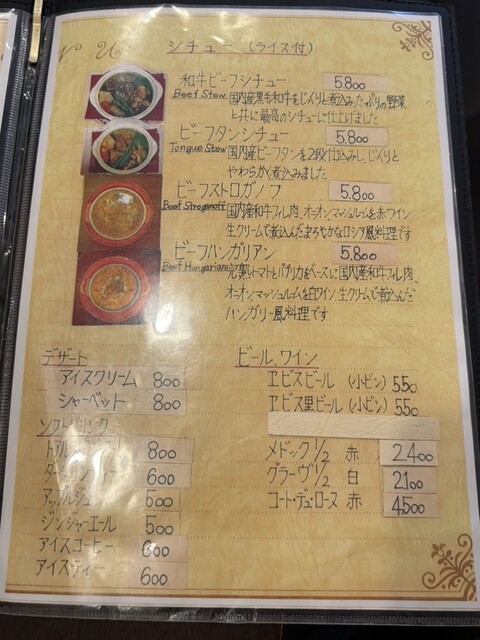 シチュー (ライス付)
和牛ビーフシチュー 5.800
Beef Stew 国内産黒毛和牛をじっくり煮込みたっぷりの野菜
と共に最高のシチューに仕上げました
ビーフタンシチュー 5.800
Tongue Stew 国内産ビーフタンを2段仕込みし、じっくりと
やわらかく煮込みました
ビーフストロガノフ 5.800
Beef Stroganoff 国内産和牛フィレ肉、オニオン、マッシュルームを赤ワイン
生クリームで煮込んだまろやかなロシア風料理です
ビーフハンガリアン 5.800
Beef Hungarian 完熟トマトとパプリカをベースに国内産和牛フィレ肉、
オニオン、マッシュルームを白ワイン、生クリームで煮込んだ
ハンガリー風料理です
デザート
アイスクリーム 800
シャーベット 800
ソフトドリンク
800
600
アップルジュース 500
ジンジャーエール 500
アイスコーヒー 600
アイスティー 600
ビール、ワイン
ヱビスビール (小ビン) 550
ヱビス黒ビール (小ビン) 550
メドック 1/2 赤 2.400
グラーヴ 1/2 白 2.100
コート・デュ・ローヌ 赤 4.500